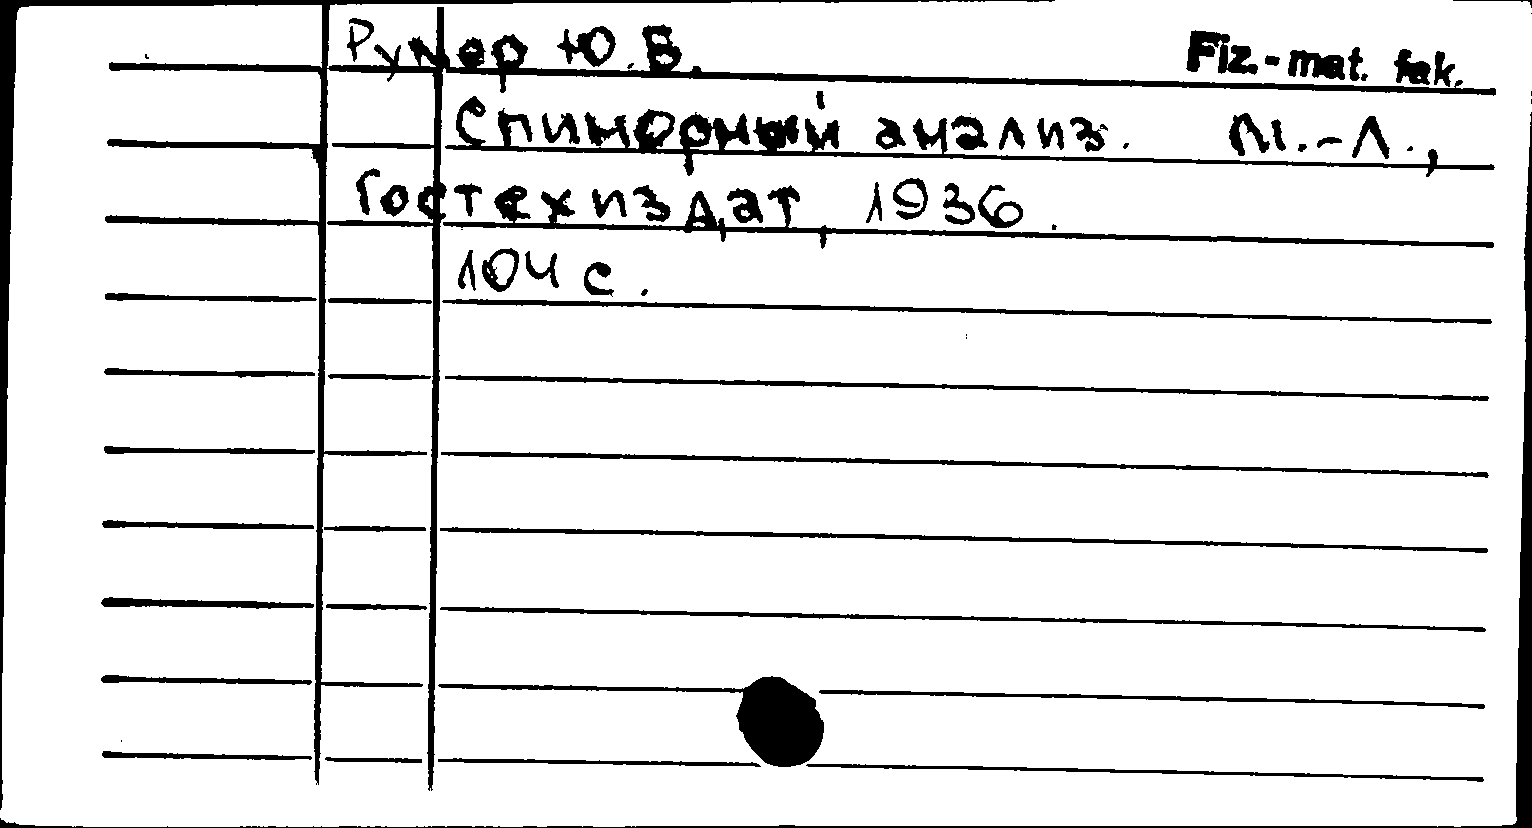 Румер Ю.Б. Fiz.-mat. fak.
Спинорный анализ. М.-Л.,
Гостехиздат, 1936.
104 с.